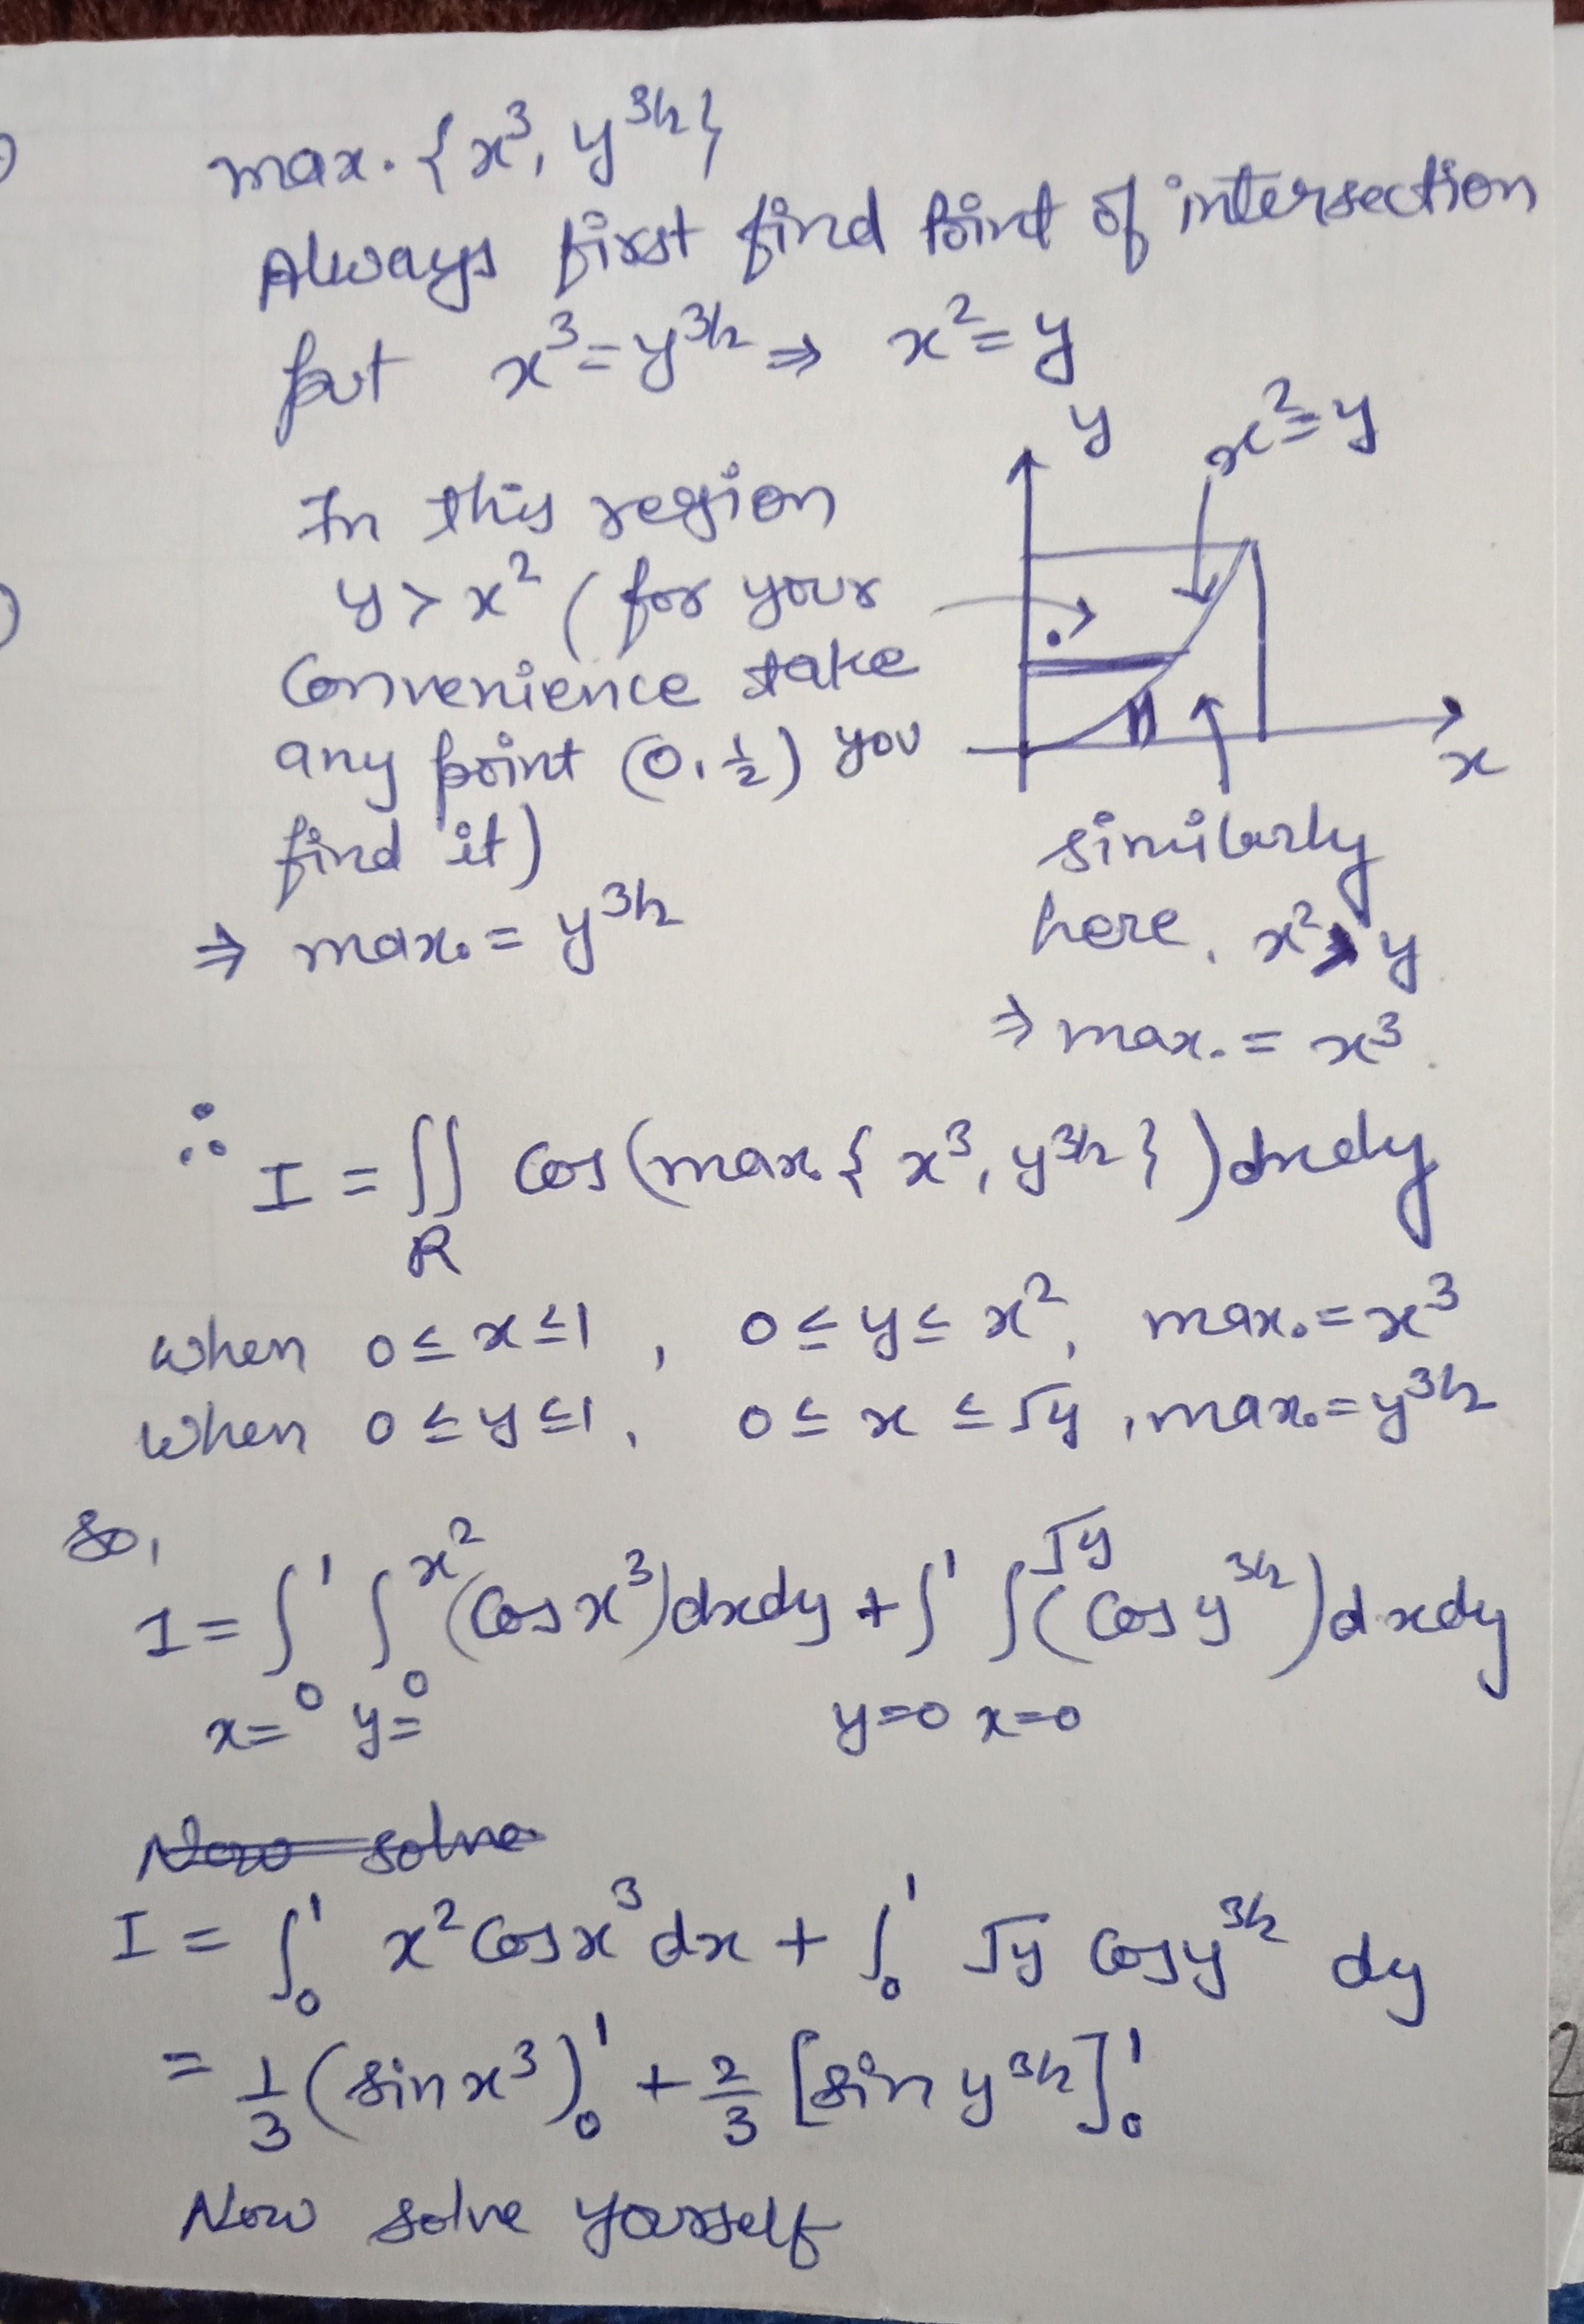 max. { x³, y^3/2 }
Always first find point of intersection
put x³ = y^3/2 ⇒ x² = y
y
x² = y
In this region
y > x² (for your
Convenience take
any point (0, 1/2) you
find it)
⇒ max. = y^3/2
x
similarly
here, x² > y
⇒ max. = x³
∴ I = ∬_R Cos (max. { x³, y^3/2 }) dxdy
when 0 ≤ x ≤ 1 , 0 ≤ y ≤ x², max. = x³
when 0 ≤ y ≤ 1, 0 ≤ x ≤ √y , max. = y^3/2
So,
I = ∫_{x=0}^{1} ∫_{y=0}^{x²} (Cos x³) dxdy + ∫_{y=0}^{1} ∫_{x=0}^{√y} (Cos y^3/2) dxdy
Now solve
I = ∫_0^1 x² Cos x³ dx + ∫_0^1 √y Cos y^3/2 dy
= 1/3 (sin x³)_0^1 + 2/3 [sin y^3/2]_0^1
Now solve yourself